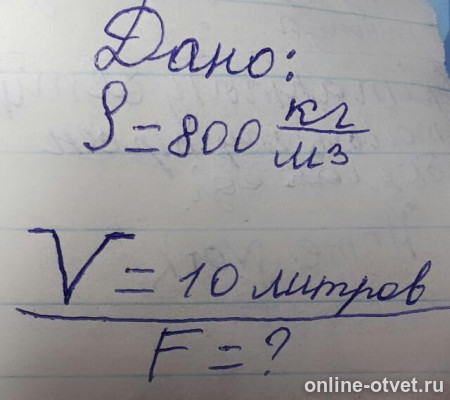 Дано:
ρ = 800 кг/м3
V = 10 литров
F = ?
online-otvet.ru